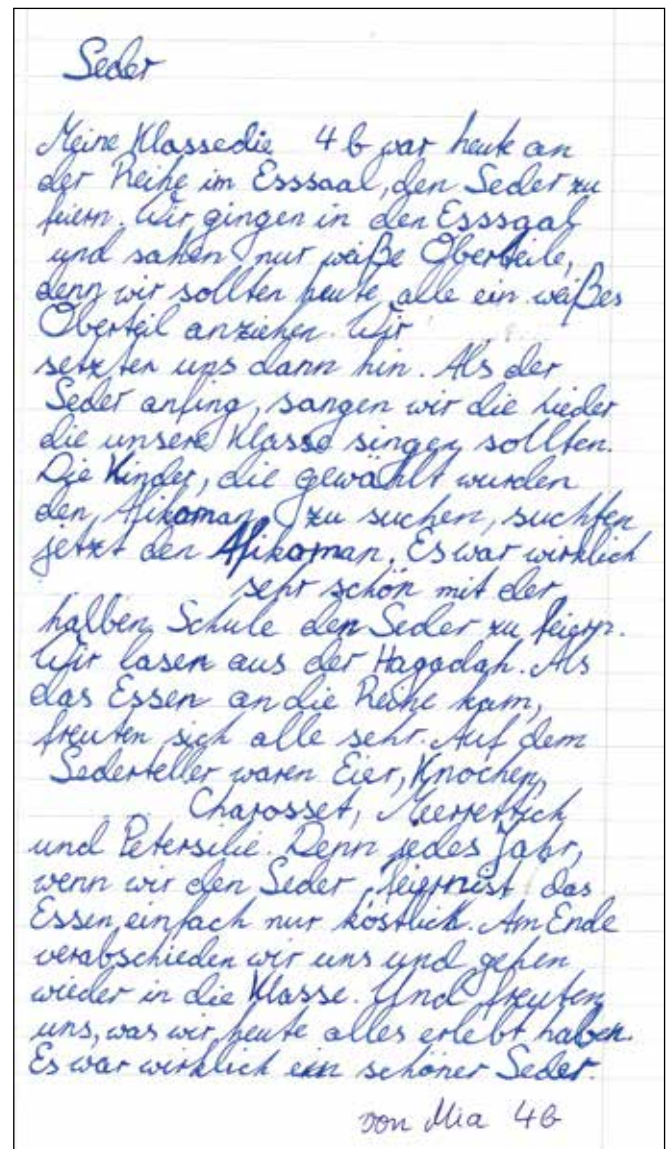 Seder
Meine Klassedie 4b war heute an
der Reihe im Esssaal, den Seder zu
feiern. Wir gingen in den Esssaal
und sahen nur weiße Oberteile,
denn wir sollten heute alle ein weißes
Oberteil anziehen. Wir
setzten uns dann hin. Als der
Seder anfing, sangen wir die Lieder
die unsere Klasse singen sollten.
Die Kinder, die gewählt wurden
den Afikoman zu suchen, suchten
jetzt den Afikoman. Es war wirklich
sehr schön mit der
halben Schule den Seder zu feiern.
Wir lasen aus der Hagadah. Als
das Essen an die Reihe kam,
freuten sich alle sehr. Auf dem
Sederteller waren Eier, Knochen,
Charosset, Meerrettich
und Petersilie. Denn jedes Jahr,
wenn wir den Seder feiernist das
Essen einfach nur köstlich. Am Ende
verabschieden wir uns und gehen
wieder in die Klasse. Und freuten
uns, was wir heute alles erlebt haben.
Es war wirklich ein schöner Seder.
von Mia 4b